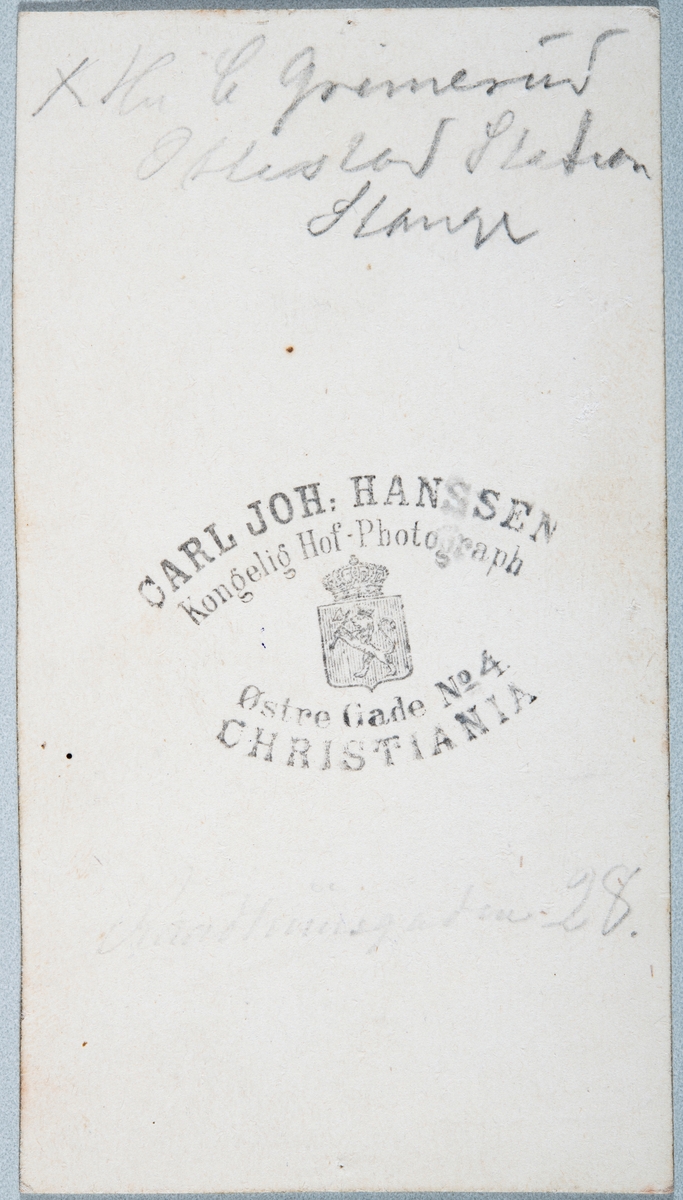 X Hr C Grimerud
Ottestad Station
Stange
CARL JOH: HANSSEN
Kongelig Hof-Photograph
Østre Gade No 4.
CHRISTIANIA
28.